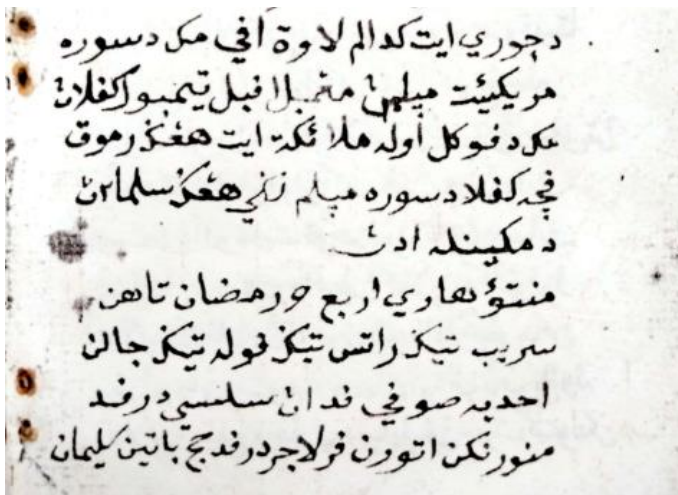 دچوري ايت كدالم لاوة افي مك دسوره
مريكئيت ميلمن مڠمبل افبيل تيمبول كفلاڽ
مك دفوكل اوله ملائكة ايت هڠڬ رموق
فچه كفلا دسوره ميلم لڬي هڠڬ سلمان
دمكينله ادڽ
منتوء هاري اربع ٩ رمضان تاهن
سريب تيڬ راتس تيڬ فوله تيڬ جالن
احمديه صوفي فداڽ سلسي درفد
منورنكن اتورن فرلاجر درفد حج باتين سليمان